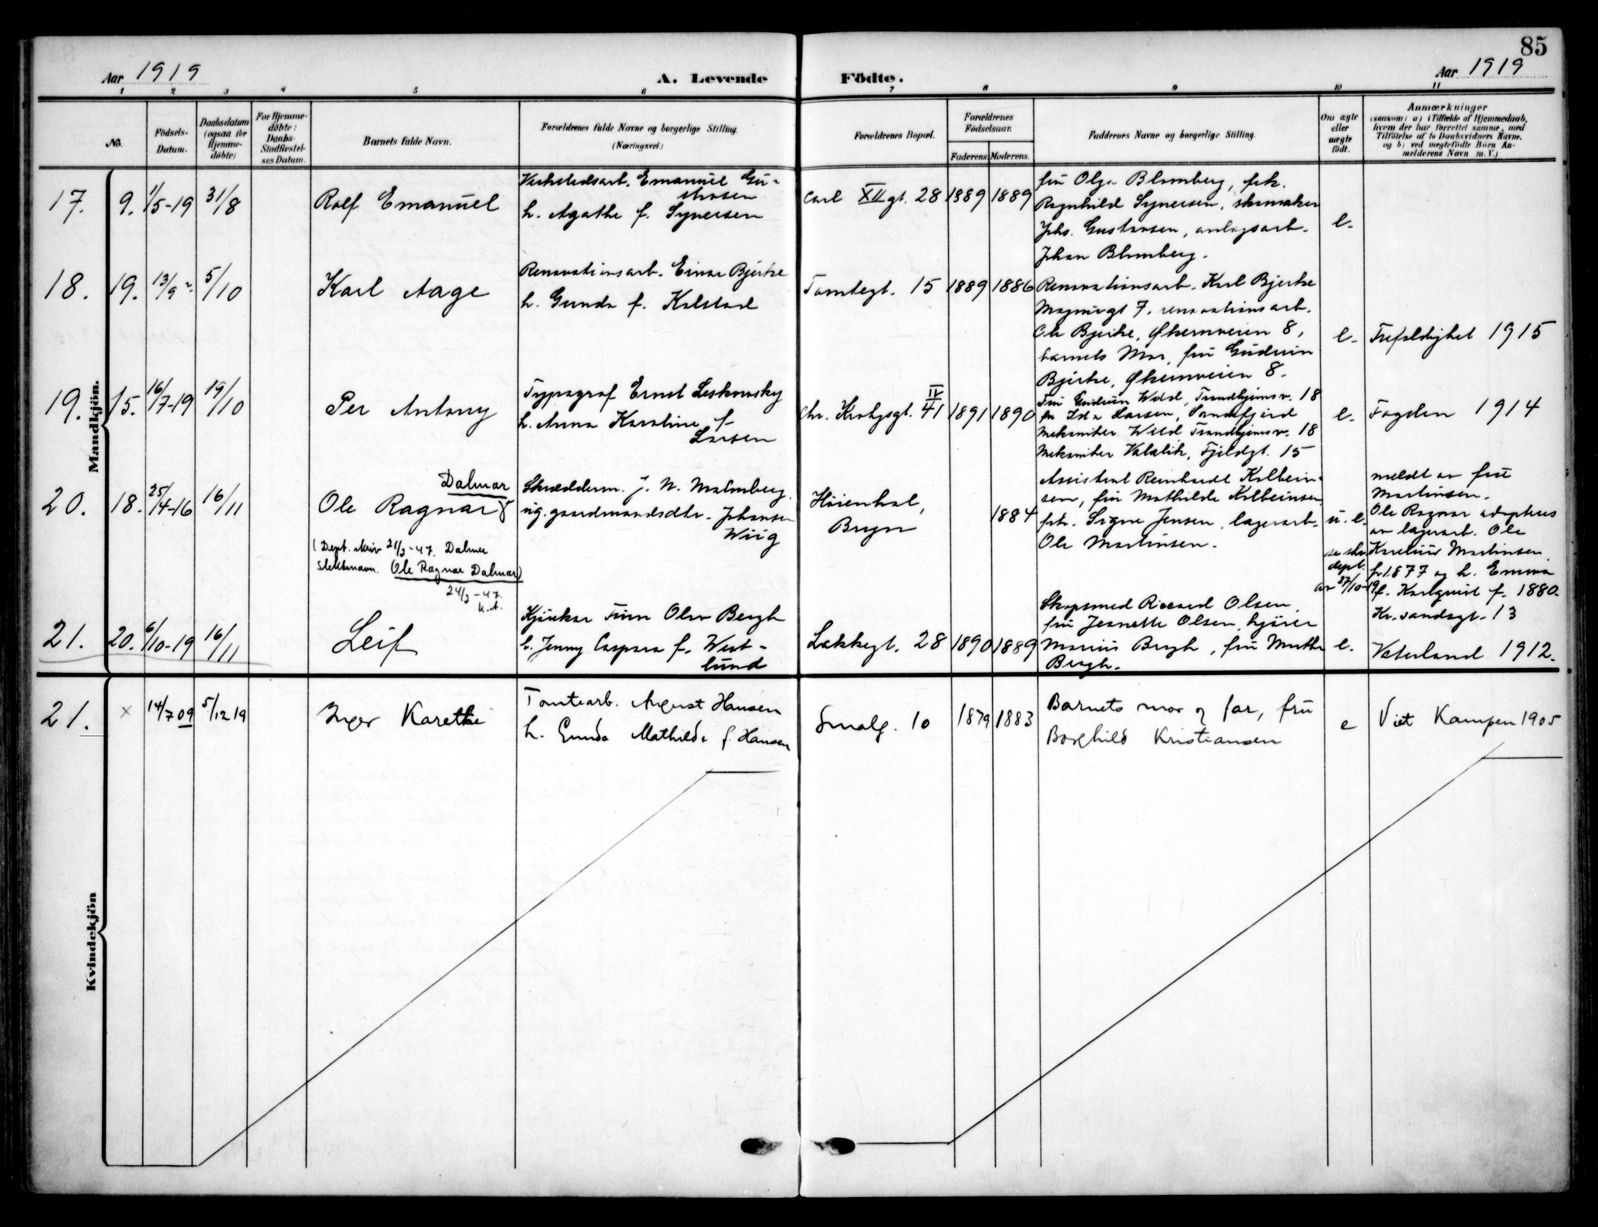 85
Aar 1919
A. Levende
Födte.
Aar 1919
1 2 3 4 5 6 7 8 9 10 11
No.
Födsels-
Datum.
Daabsdatum
(ogsaa for
Hjemme-
døbte)
For Hjemme-
døbte:
Daabs-
Stadfæstel-
ses Datum.
Barnets fulde Navn.
Forældrenes fulde Navne og borgerlige Stilling.
(Næringsvei)
Forældrenes Bopæl.
Forældrenes
Födselsaar.
Faderens. Moderens.
Faddernes Navne og borgerlige Stilling.
Om ægte
eller
uægte
født.
Anmærkninger
(saasom: a) i Tilfælde af Hjemmedaab,
hvem der har forrettet samme, med
Tilføielse af to Daabsvidners Navne,
og b) ved uegtefödte Börn An-
melderens Navn m. V.)
Mandkjön.
17. 9. 1/5-19 31/8
Rolf Emanuel
Verkstedsarb. Emanuel Gu-
stavsen
h. Agathe f. Synersen
Carl XII gt. 28
1889 1889
fru Olga Blomberg, frk.
Ragnhild Synersen, skomaker
Johs. Gustavsen, anlegsarb.
Johan Blomberg.
e.
18. 19. 13/9 5/10
Karl Aage
Renovationsarb. Einar Bjerke
h. Gunda f. Kolstad
Tomtegt. 15
1889 1886
Renovationsarb. Karl Bjerke
7, renovationsarb.
Ole Bjerke, Økernveien 8,
barnets Mor, fru Gudrun
Bjerke, Økernveien 8.
e.
Trefoldighet 1915
19. 15. 16/7-19 19/10
Per Antony
Typograf Ernst Leskowsky
h. Anna Karoline f.
Larsen
Chr. Krohgsgt. 41 IV
1891 1890
Fru Gudrun Wold, Trondhjemsv. 18
fru Ida Larsen, Sandefjord
Mekaniker Wold Trondhjemsv. 18
Mekaniker Fjeldgt. 15
e.
Fagden 1914
20. 18. 25/4-16 16/11
Dalmar
Ole Ragnar
(Dept. skriv 21/2-47. Dalmar
slektsnavn. (Ole Ragnar Dalmar)
24/2-47.
K.A.
Skredderm. J. N. Malmberg
ug. gaardmandsdtr. Johanne
Wiig
Høienhal,
Bryn
1884
Assistent Reinhardt Kolbein-
sen, fru Mathilde Kolbeinsen
frk. Signe Jensen, lagerarb.
Ole Martinsen.
u. e.
se skr.
dept.
av 27/10-19
meldt av fru
Martinsen.
Ole Ragnar adopteres
av lagerarb. Ole
Karelius Martinsen
f. 1877 og h. Emma
f. Karlquist f. 1880.
Kr.sandsgt. 13
21. 20. 6/10-19 16/11
Leif
Kjørekar Finn Olav Bergh
h. Jenny Caspara f. West-
lund
Lakkegt. 28
1890 1889
Skopsmed Ricard Olsen
fru Jeanette Olsen, kjører
Marius Bergh, fru Marthe
Bergh.
e.
Vaterland 1912.
Kvindekjön
21. x 14/7 09 5/12 19
Inger Karethe
Tomtearb. August Hansen
h. Gunda Mathilde f. Hansen
Smalg. 10
1879 1883
Barnets mor og far, fru
Borghild Kristiansen
e
Viet Kampen 1905